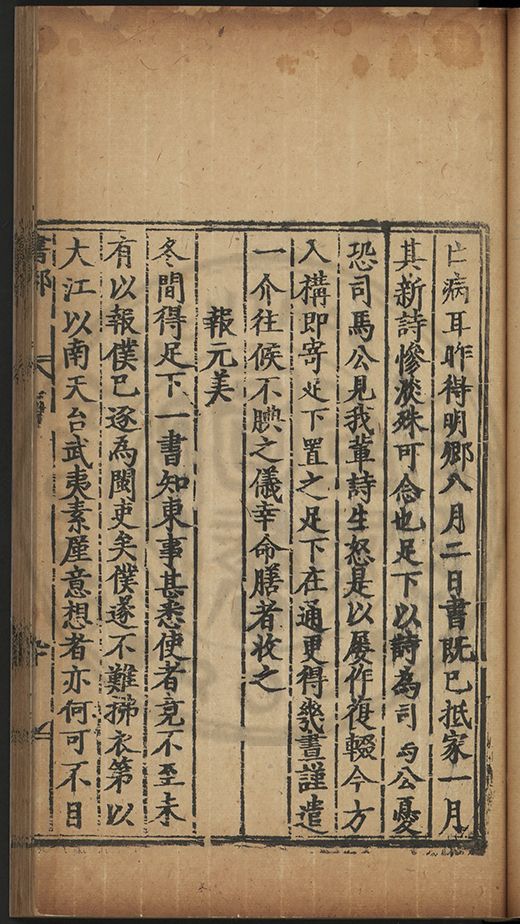 亡病耳昨得明卿八月二日書既已抵家一月
其新詩慘淡殊可念也足下以詩為司馬公憂
恐司馬公見我輩詩生怒是以屢作復輟今方
入構即寄足下置之足下在通更得幾晝謹遣
一介往候不腆之儀幸命膳者收之
報元美
冬間得足下一書知東事甚悉使者竟不至未
有以報僕已逐為閩吏矣僕遂不難拂衣第以
大江以南天台武夷素厪意想者亦何可不目
書部